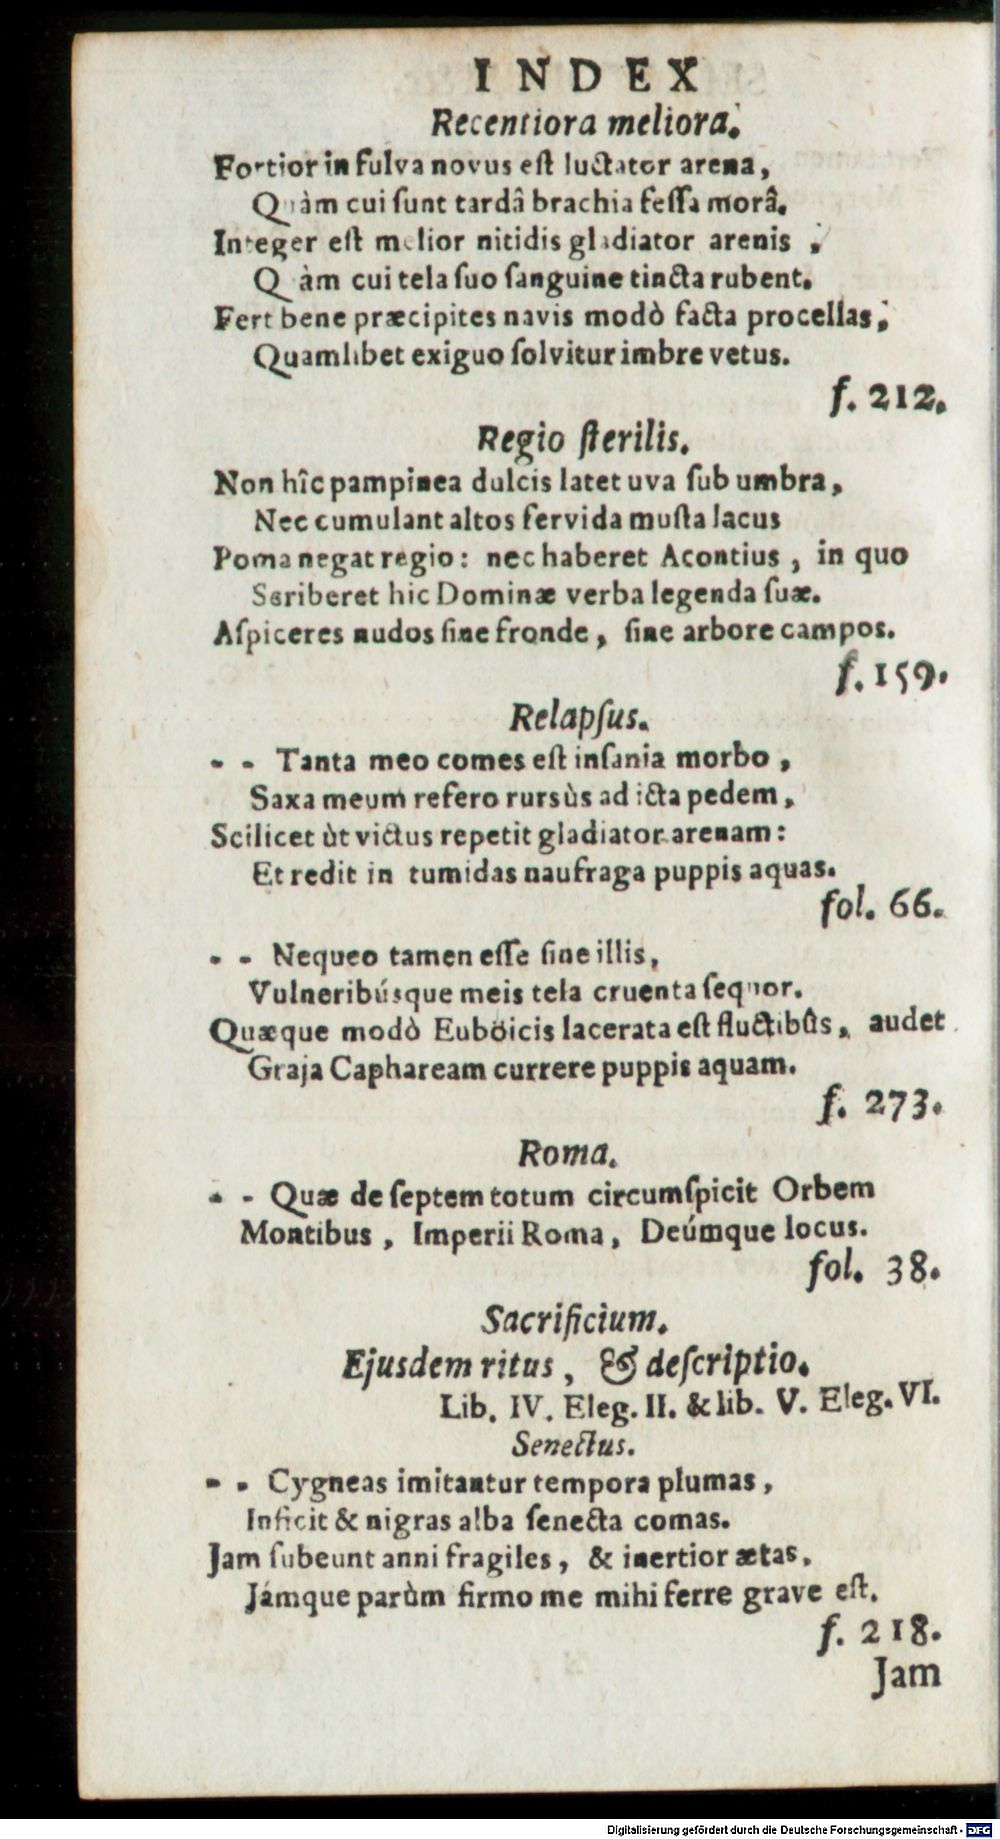 INDEX
Recentiora meliora.
Fortior in fulva novus eſt luctator arena,
Quàm cui ſunt tardâ brachia feſſa morâ.
Integer eſt melior nitidis gladiator arenis,
Quàm cui tela ſuo ſanguine tincta rubent.
Fert bene præcipites navis modò facta procellas;
Quamlibet exiguo ſolvitur imbre vetus.
f. 212.
Regio ſterilis.
Non hîc pampinea dulcis latet uva ſub umbra,
Nec cumulant altos fervida muſta lacus
Poma negat regio: nec haberet Acontius, in quo
Scriberet hic Dominæ verba legenda ſuæ.
Aſpiceres nudos ſine fronde, ſine arbore campos.
f. 159.
Relapſus.
- - Tanta meo comes eſt inſania morbo,
Saxa meum refero rursùs ad icta pedem,
Scilicet ùt victus repetit gladiator arenam:
Et redit in tumidas naufraga puppis aquas.
fol. 66.
- - Nequeo tamen eſſe ſine illis,
Vulneribúsque meis tela cruenta ſequor.
Quæque modò Euböicis lacerata eſt fluctibûs, audet
Graja Capharеam currere puppis aquam.
f. 273.
Roma.
- - Quæ de ſeptem totum circumſpicit Orbem
Montibus, Imperii Roma, Deúmque locus.
fol. 38.
Sacrificium.
Ejusdem ritus, & deſcriptio.
Lib. IV. Eleg. II. & lib. V. Eleg. VI.
Senectus.
- - Cygneas imitantur tempora plumas,
Inficit & nigras alba ſenecta comas.
Jam ſubeunt anni fragiles, & inertior ætas,
Jámque parùm firmo me mihi ferre grave eſt.
f. 218.
Jam
Digitalisierung gefördert durch die Deutsche Forschungsgemeinschaft - DFG